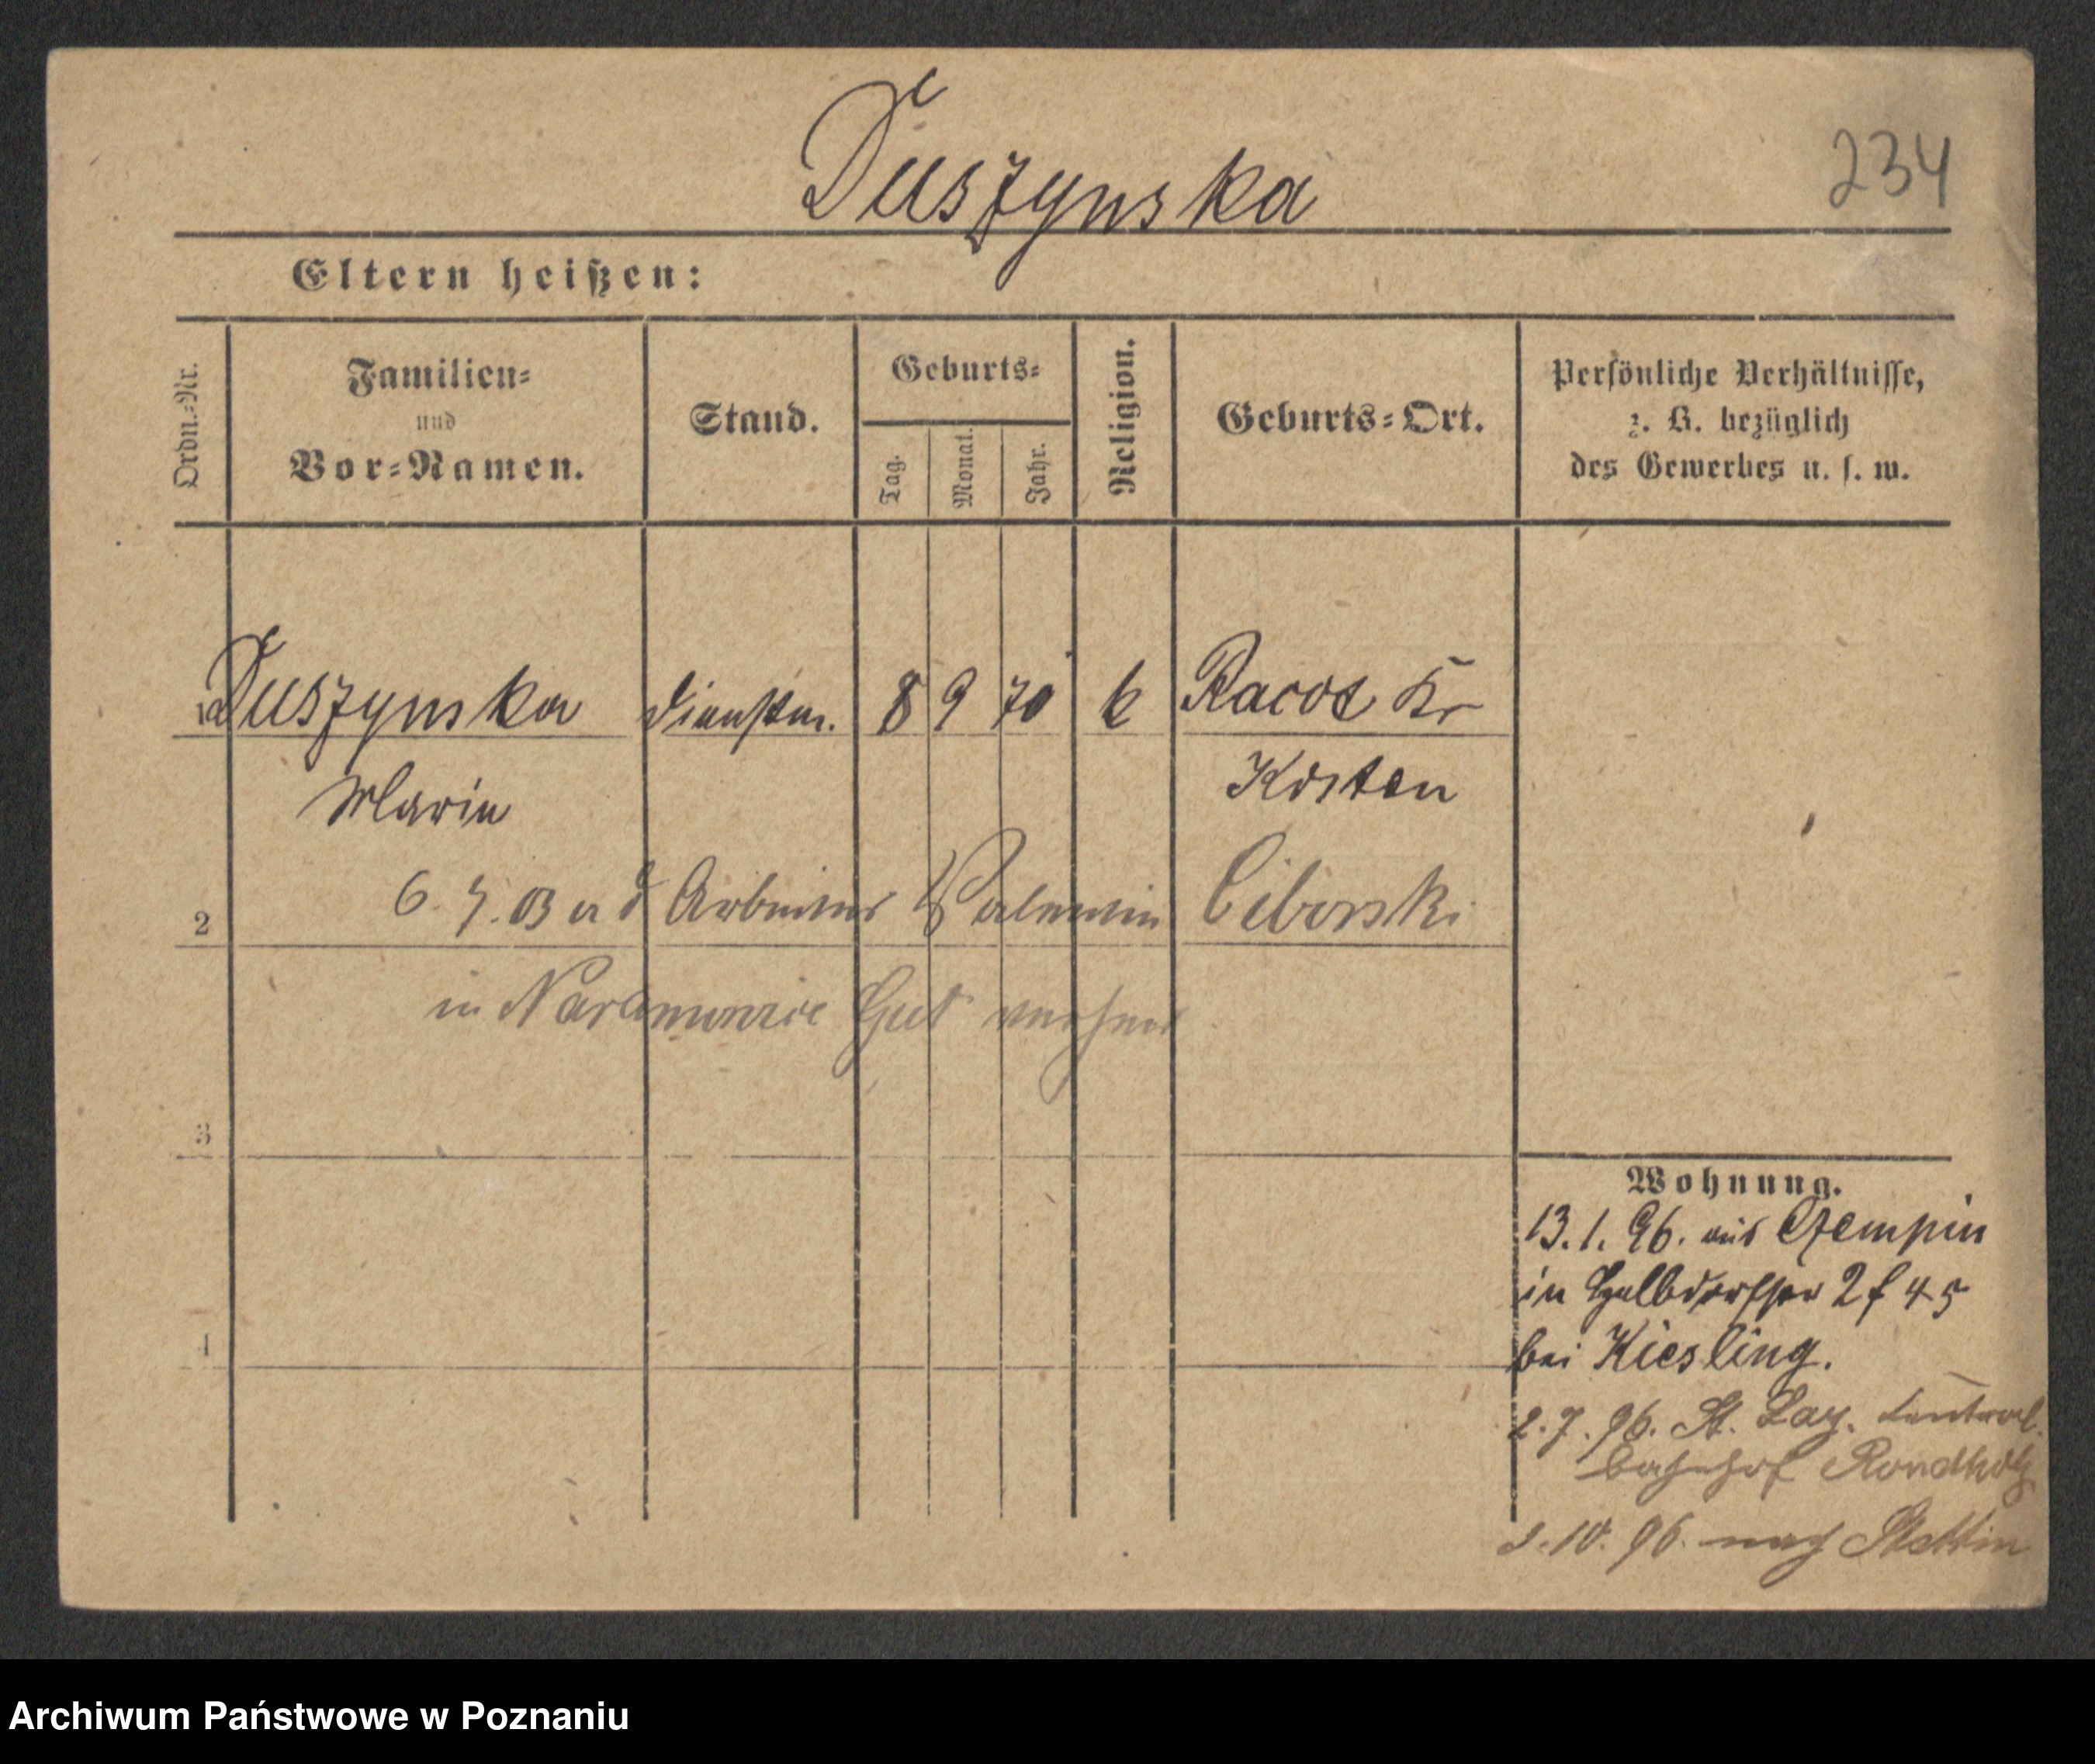 Duszynska
234
Eltern heißen:
Ordn.-Nr.
Familien-
und
Vor-Namen.
Stand.
Geburts-
Tag.
Monat.
Jahr.
Religion.
Geburts-Ort.
Persönliche Verhältnisse,
z. B. bezüglich
des Gewerbes u. s. w.
1 Duszynska Dienstm. 8 9 70 k Racot Kr
Marie Kosten
2 6. 7. 03 a d Arbeiter Valentin Ciborski
in Naramowice Gut verh
3
4
Wohnung.
13. 1. 96. aus Czempin
in Halbdorfstr 2 f 45
bei Kiesling.
2. 7. 96. St. Laz. Central-
bahnhof Rondholz
2. 10. 96. nach Stettin
Archiwum Państwowe w Poznaniu